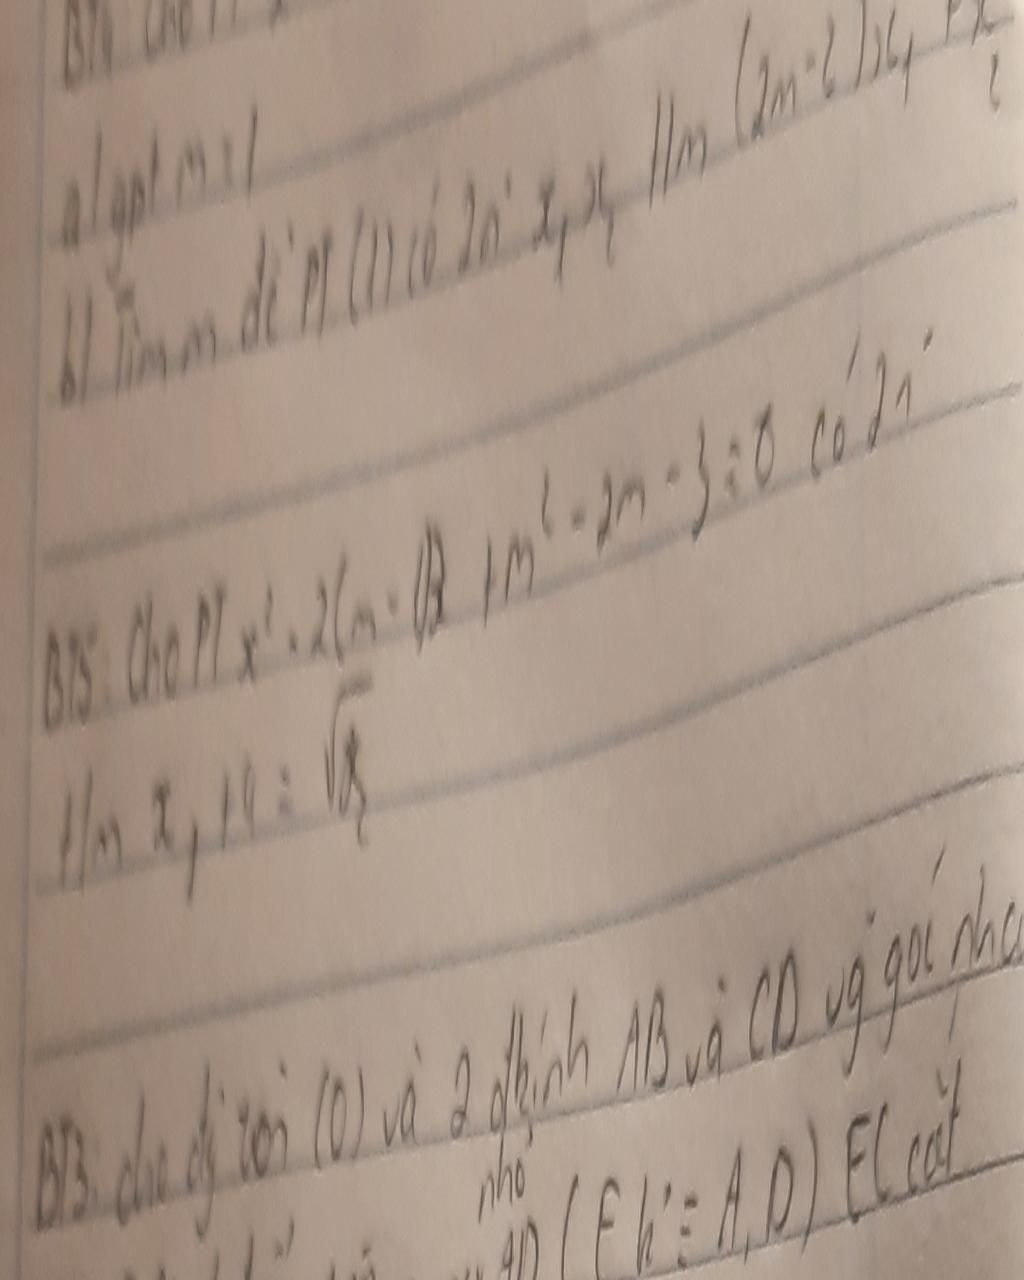 BT4 Cho PT x
a/ gpt m=1
b/ Tìm m để PT (1) có 2n° x₁, x₂ t/m (2m-2)x₁ + x₂²
BT5: Cho PT x² - 2(m-1)x + m² - 2m - 3 = 0 có 2n°
t/m x₁ + 4 = √x₂
BT3: cho đg tròn (O) và 2 đkính AB và CD vg góc nha
nhỏ AD (E k° ≡ A, D) EC cắt